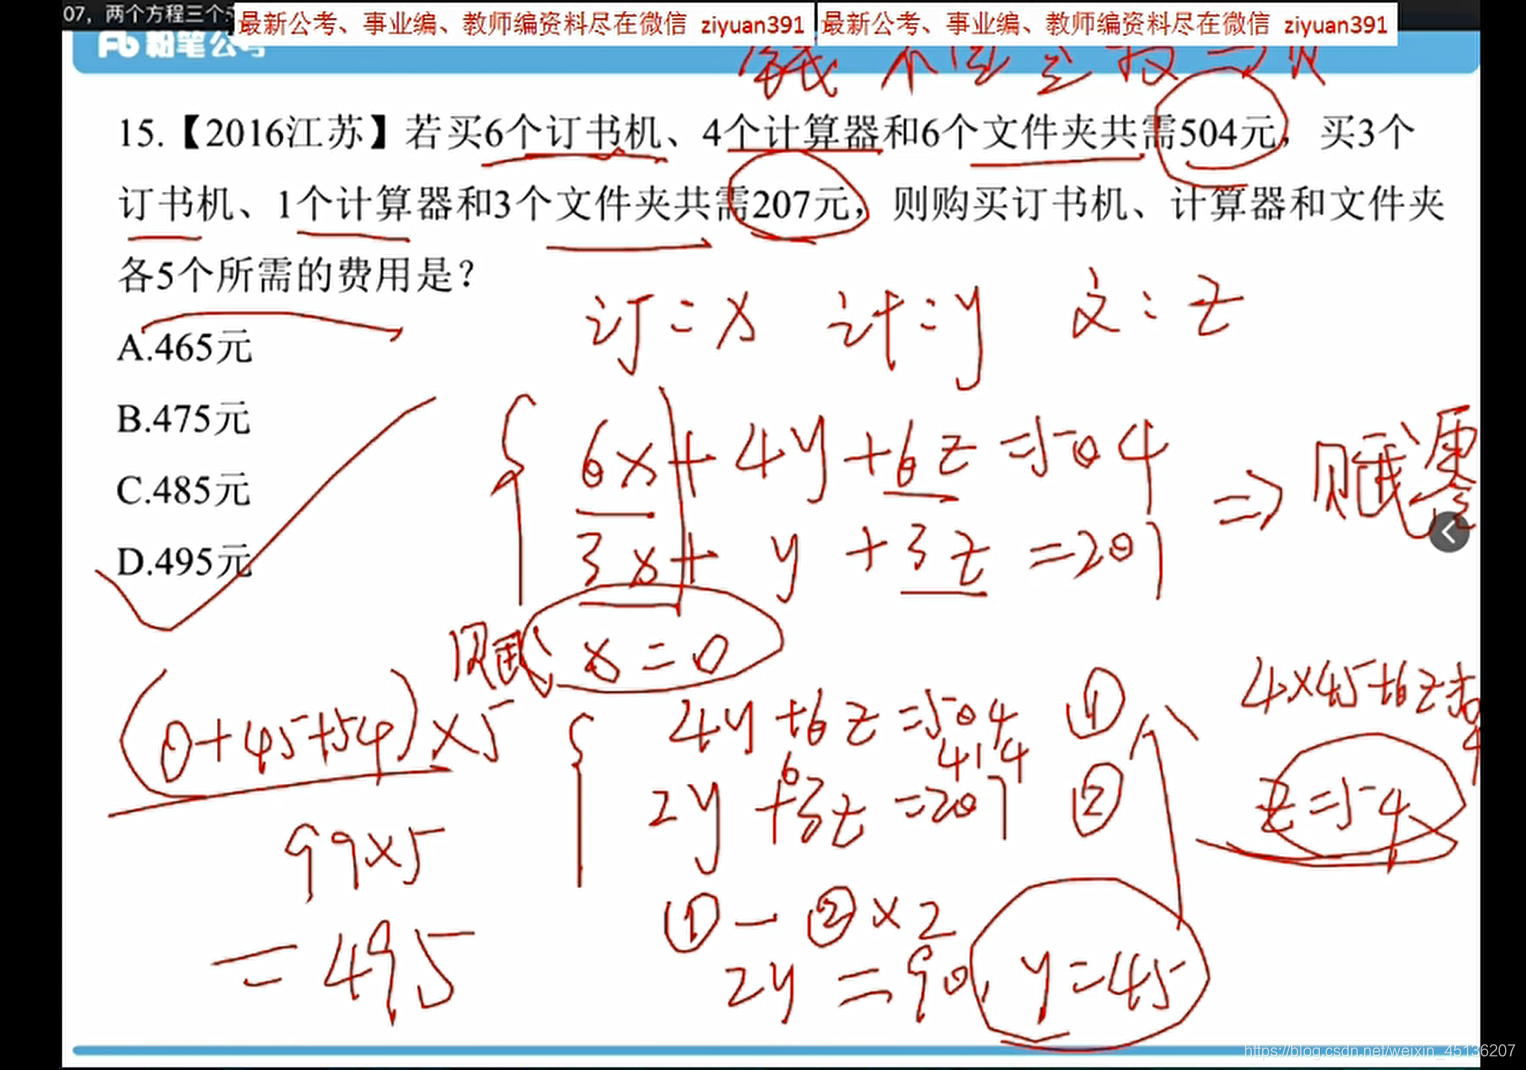 07，两个方程三个
最新公考、事业编、教师编资料尽在微信 ziyuan391
最新公考、事业编、教师编资料尽在微信 ziyuan391
粉笔公考
15.【2016江苏】若买6个订书机、4个计算器和6个文件夹共需504元，买3个
订书机、1个计算器和3个文件夹共需207元，则购买订书机、计算器和文件夹
各5个所需的费用是？
A.465元
B.475元
C.485元
D.495元
订=x 计=y 文:z
6x+4y+6z=504
3x+y+3z=207
⇒赋零
赋 x=0
4y+6z=504 ①
414
6
2y+3z=207 ②
①-②×2
2y=90, y=45
4×45+6z=504
z=54
(0+45+54)×5
99×5
=495
https://blog.csdn.net/weixin_45136207